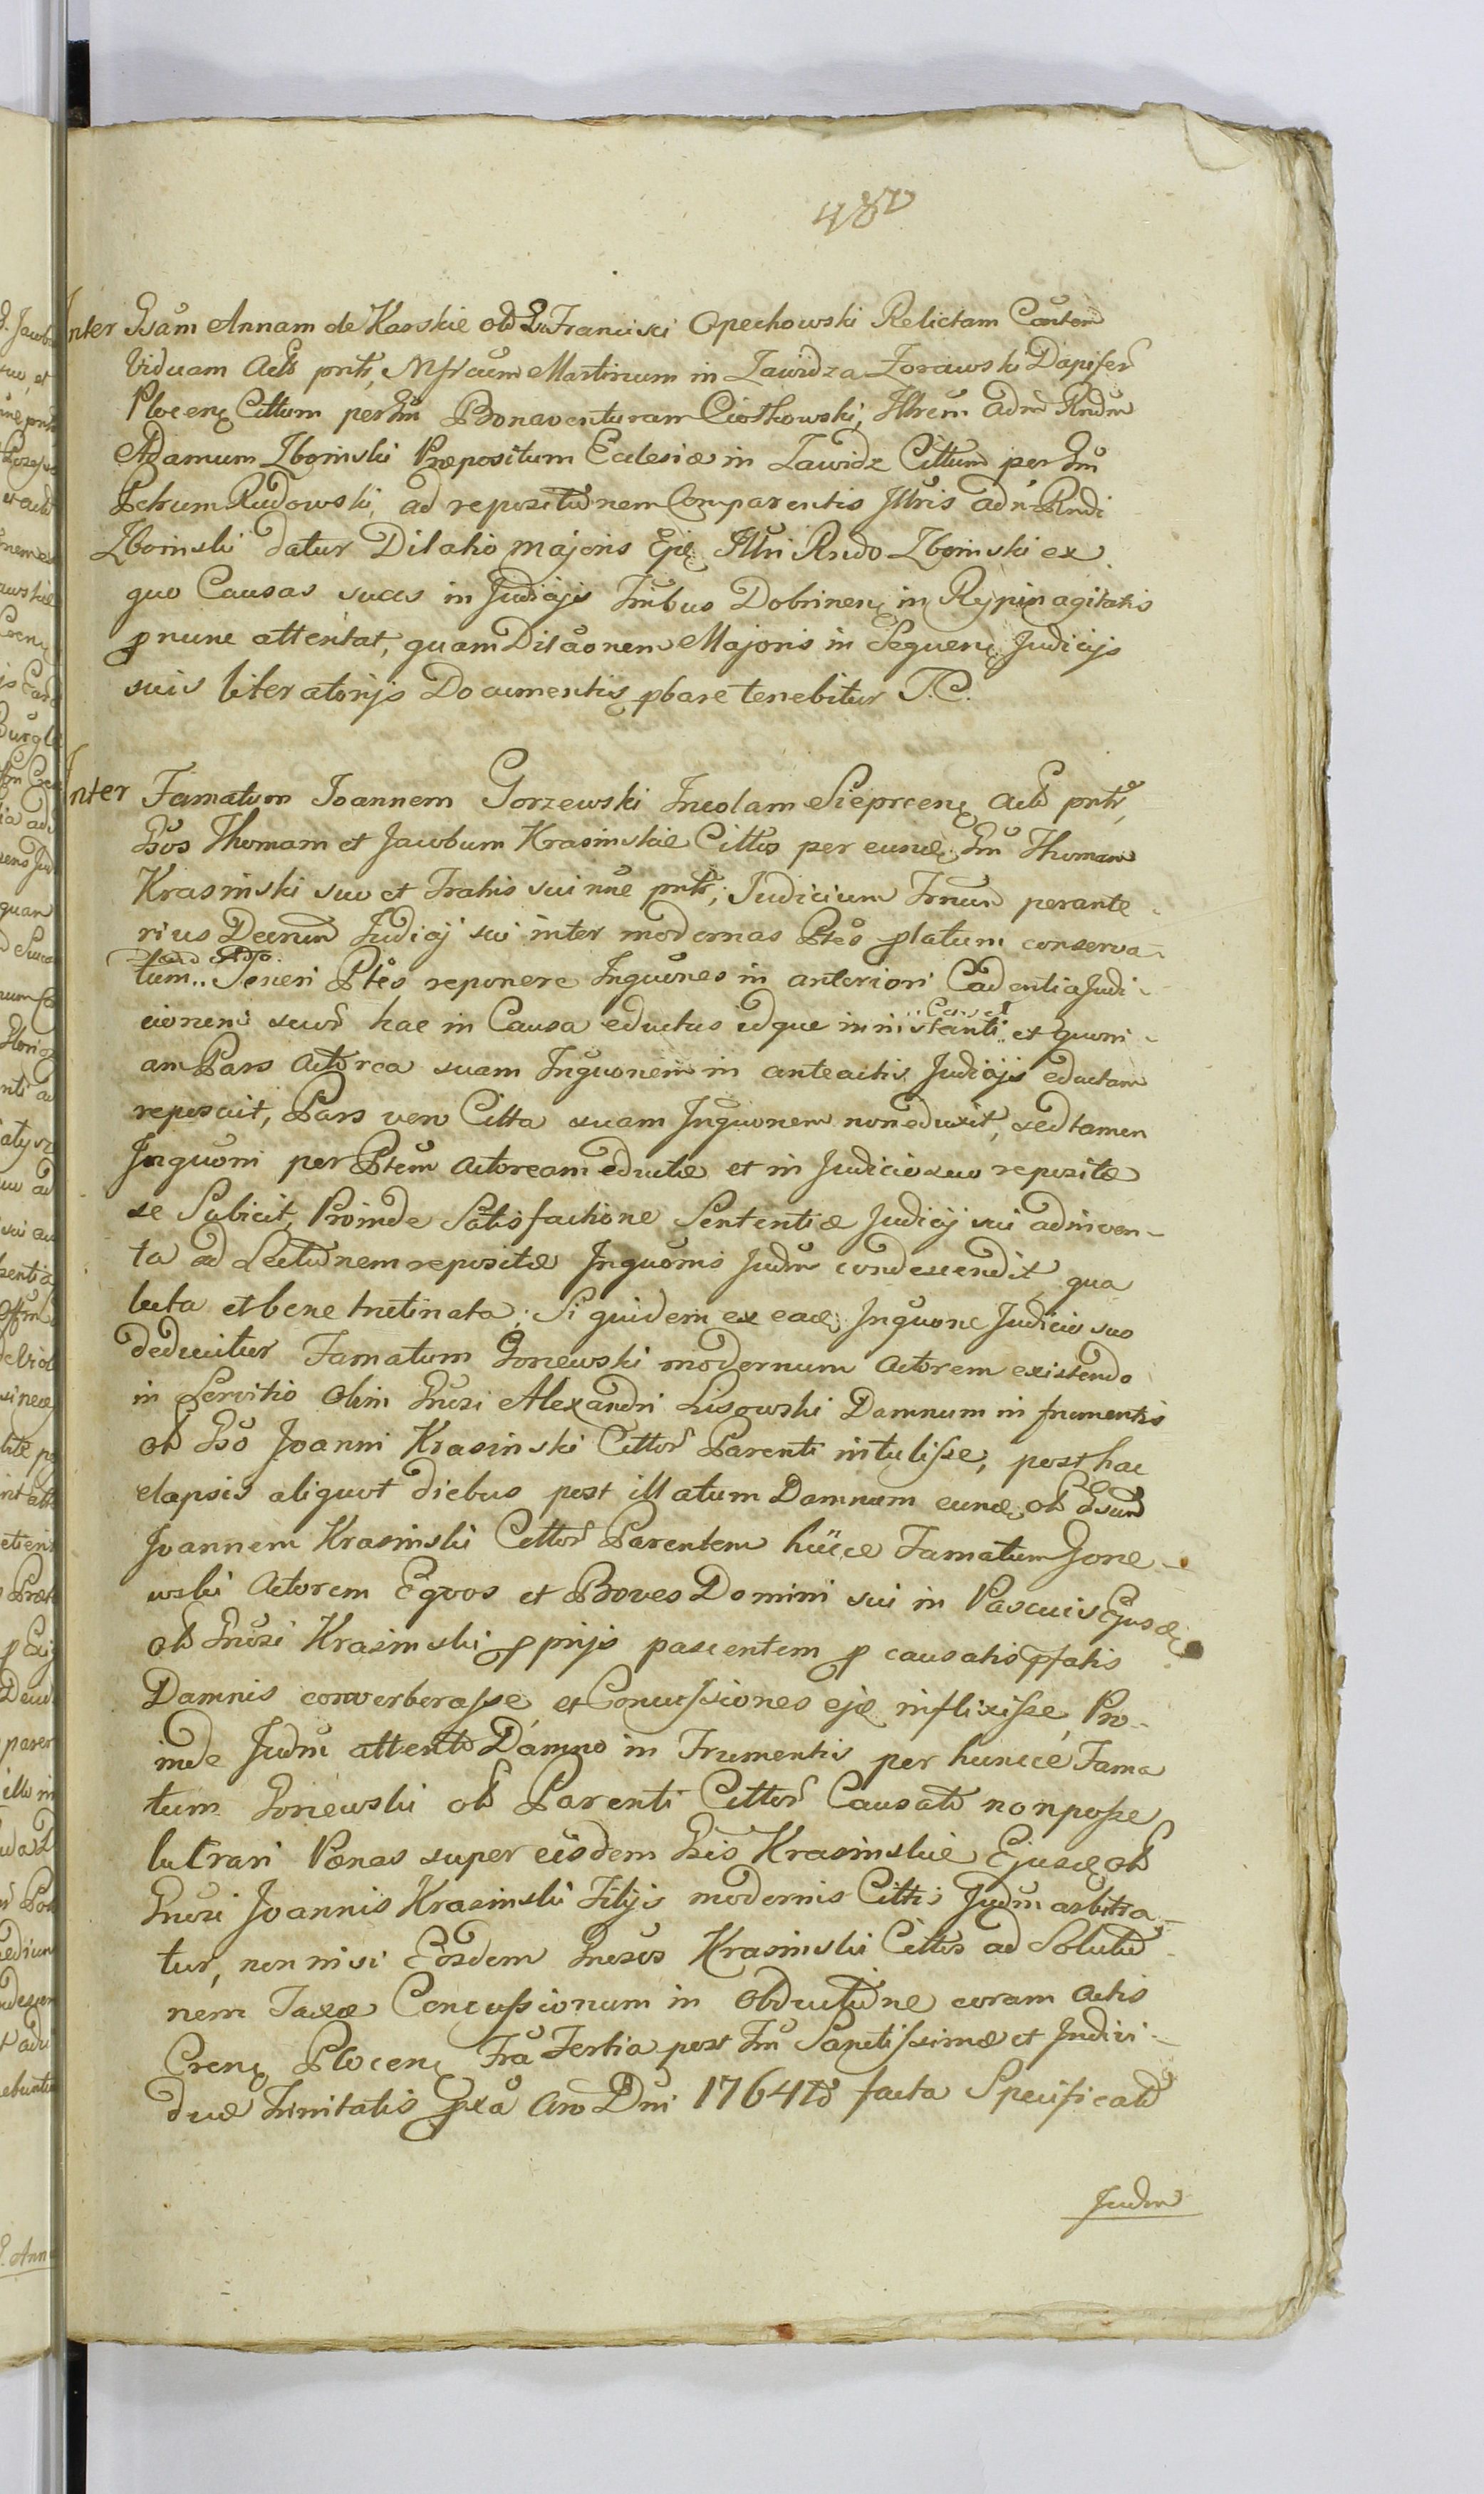 487
Inter Gsam Annam de Karskie olim Gsi Francisci Opechowski Relictam Consortem
Viduam Act. pntr, Mfcum Martinum in Zawidza Zorawski Dapiferum
Plocen Cittum per Gsm Bonaventuram Ciotkowski, Illrem adm Rndm
Adamum Zboinski Præpositum Ecclesiæ in Zawidz Cittum per Gm
Petrum Rudowski, ad repositionem Comparentis Illris adm Rndi
Zboinski datur Dilatio majoris Ejd. Illri Rndo Zboinski ex
quo Causas suas in Judicijs Trnlbus Dobrinen in Rypin agitatis
p nunc attentat, quam Dilaonem Majoris in Sequen Judicijs
suis literatorijs Documentis pbare tenebitur T. C.
Inter Famatum Joannem Gorzewski Incolam Sieprcen Act. pntr,
Gsos Thomam et Jacobum Krasinskie Cittos per eund. Gm Thomam
Krasinski suo et Fratris sui nne pntr; Judicium Trnum per ante-
rius Decretum Judicij sui inter modernas Ptes platum conserva-
tum.. Teneri Ptes reponere Inquones in anteriori Cadentia Judi-
cionem suor hac in Causa eductas idque in instanti.. et quoni-
am Pars Actorea suam Inquonem in anteactis Judicijs eductam
reposuit, Pars vero Citta suam Inquonem non eduxit, sed tamen
Inquoni per Ptem Actoream eductæ et in Judicio suo repositæ
se Subicit, Proinde Satisfactione Sententiæ Judicij sui adinven-
ta ad Lectionem repositæ Inquonis Judm condescendit qua
lecta et bene trutinata; Si quidem ex ead. Inquone Judicio suo
deducitur Famatum Gorzewski modernum Actorem existendo
in Servitio olim Gnrosi Alexandri Lisowski Damnum in frumentis
olim Gso Joanni Krasinski Cittor Parenti intulisse, post hac
elapsis aliquot diebus post illatum Damnum eund. olim Gsum
Joannem Krasinski Cittor Parentem hucce Famatum Gorze-
wski Actorem Equos et Boves Domini sui in Pascuis Ejusd.
olim Gnrosi Krasinski pprijs pascentem p causatis pfatis
Damnis converberasse et Concussiones ejd. inflixisse, Pro-
inde Judm attento Damno in Frumentis per huncce Fama
tum Gorzewski olim Parenti Cittor Causato non posse
lucrari Pœnas super eisdem Gsis Krasinskie Ejusd. olim
Gnrosi Joannis Krasinski Filijs modernis Cittis Judm arbitra-
tur, non nisi Eosdem Gnrosos Krasinski Cittos ad Solutio-
nem Taxæ Concussionum in obductione coram Actis
Cren Plocen Fra Tertia post Fm Sanctissimæ et Indivi-
duæ Trinitatis Pxa Ano Dni 1764to facta Specificatam
Judm